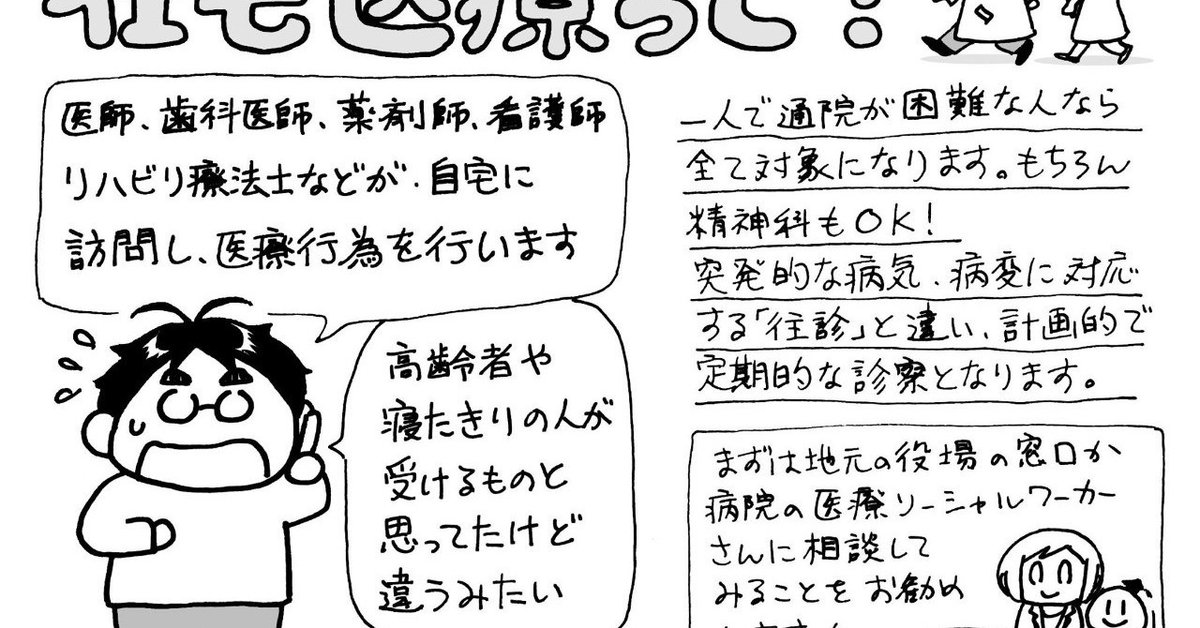 在宅医療って？
医師、歯科医師、薬剤師、看護師
リハビリ療法士などが、自宅に
訪問し、医療行為を行います
高齢者や
寝たきりの人が
受けるものと
思ってたけど
違うみたい
一人で通院が困難な人なら
全て対象になります。もちろん
精神科もOK！
突発的な病気、病変に対応
する「往診」と違い、計画的で
定期的な診察となります。
まずは地元の役場の窓口か
病院の医療ソーシャルワーカー
さんに相談して
みることをお勧め